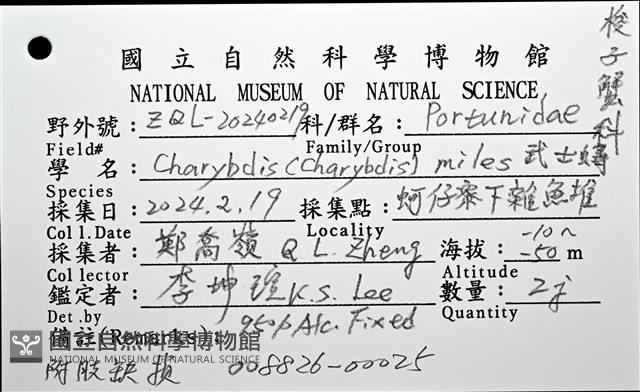 梭子蟹科
國立自然科學博物館
NATIONAL MUSEUM OF NATURAL SCIENCE
野外號：ZQL-20240219 科/群名：Portunidae
Field# Family/Group
學 名：Charybdis (Charybdis) miles 武士蟳
Species
採集日：2024.2.19 採集點：蚵仔寮下雜魚堆
Coll.Date Locality
採集者：鄭喬嶺 Q.L. Zheng 海拔：-10~-50 m
Collector Altitude
鑑定者：李坤瑄 K.S. Lee 數量：2
Det.by Quantity
備註(Remarks)： 95% Alc. Fixed
國立自然科學博物館
NATIONAL MUSEUM OF NATURAL SCIENCE
附肢缺損 008826-00025